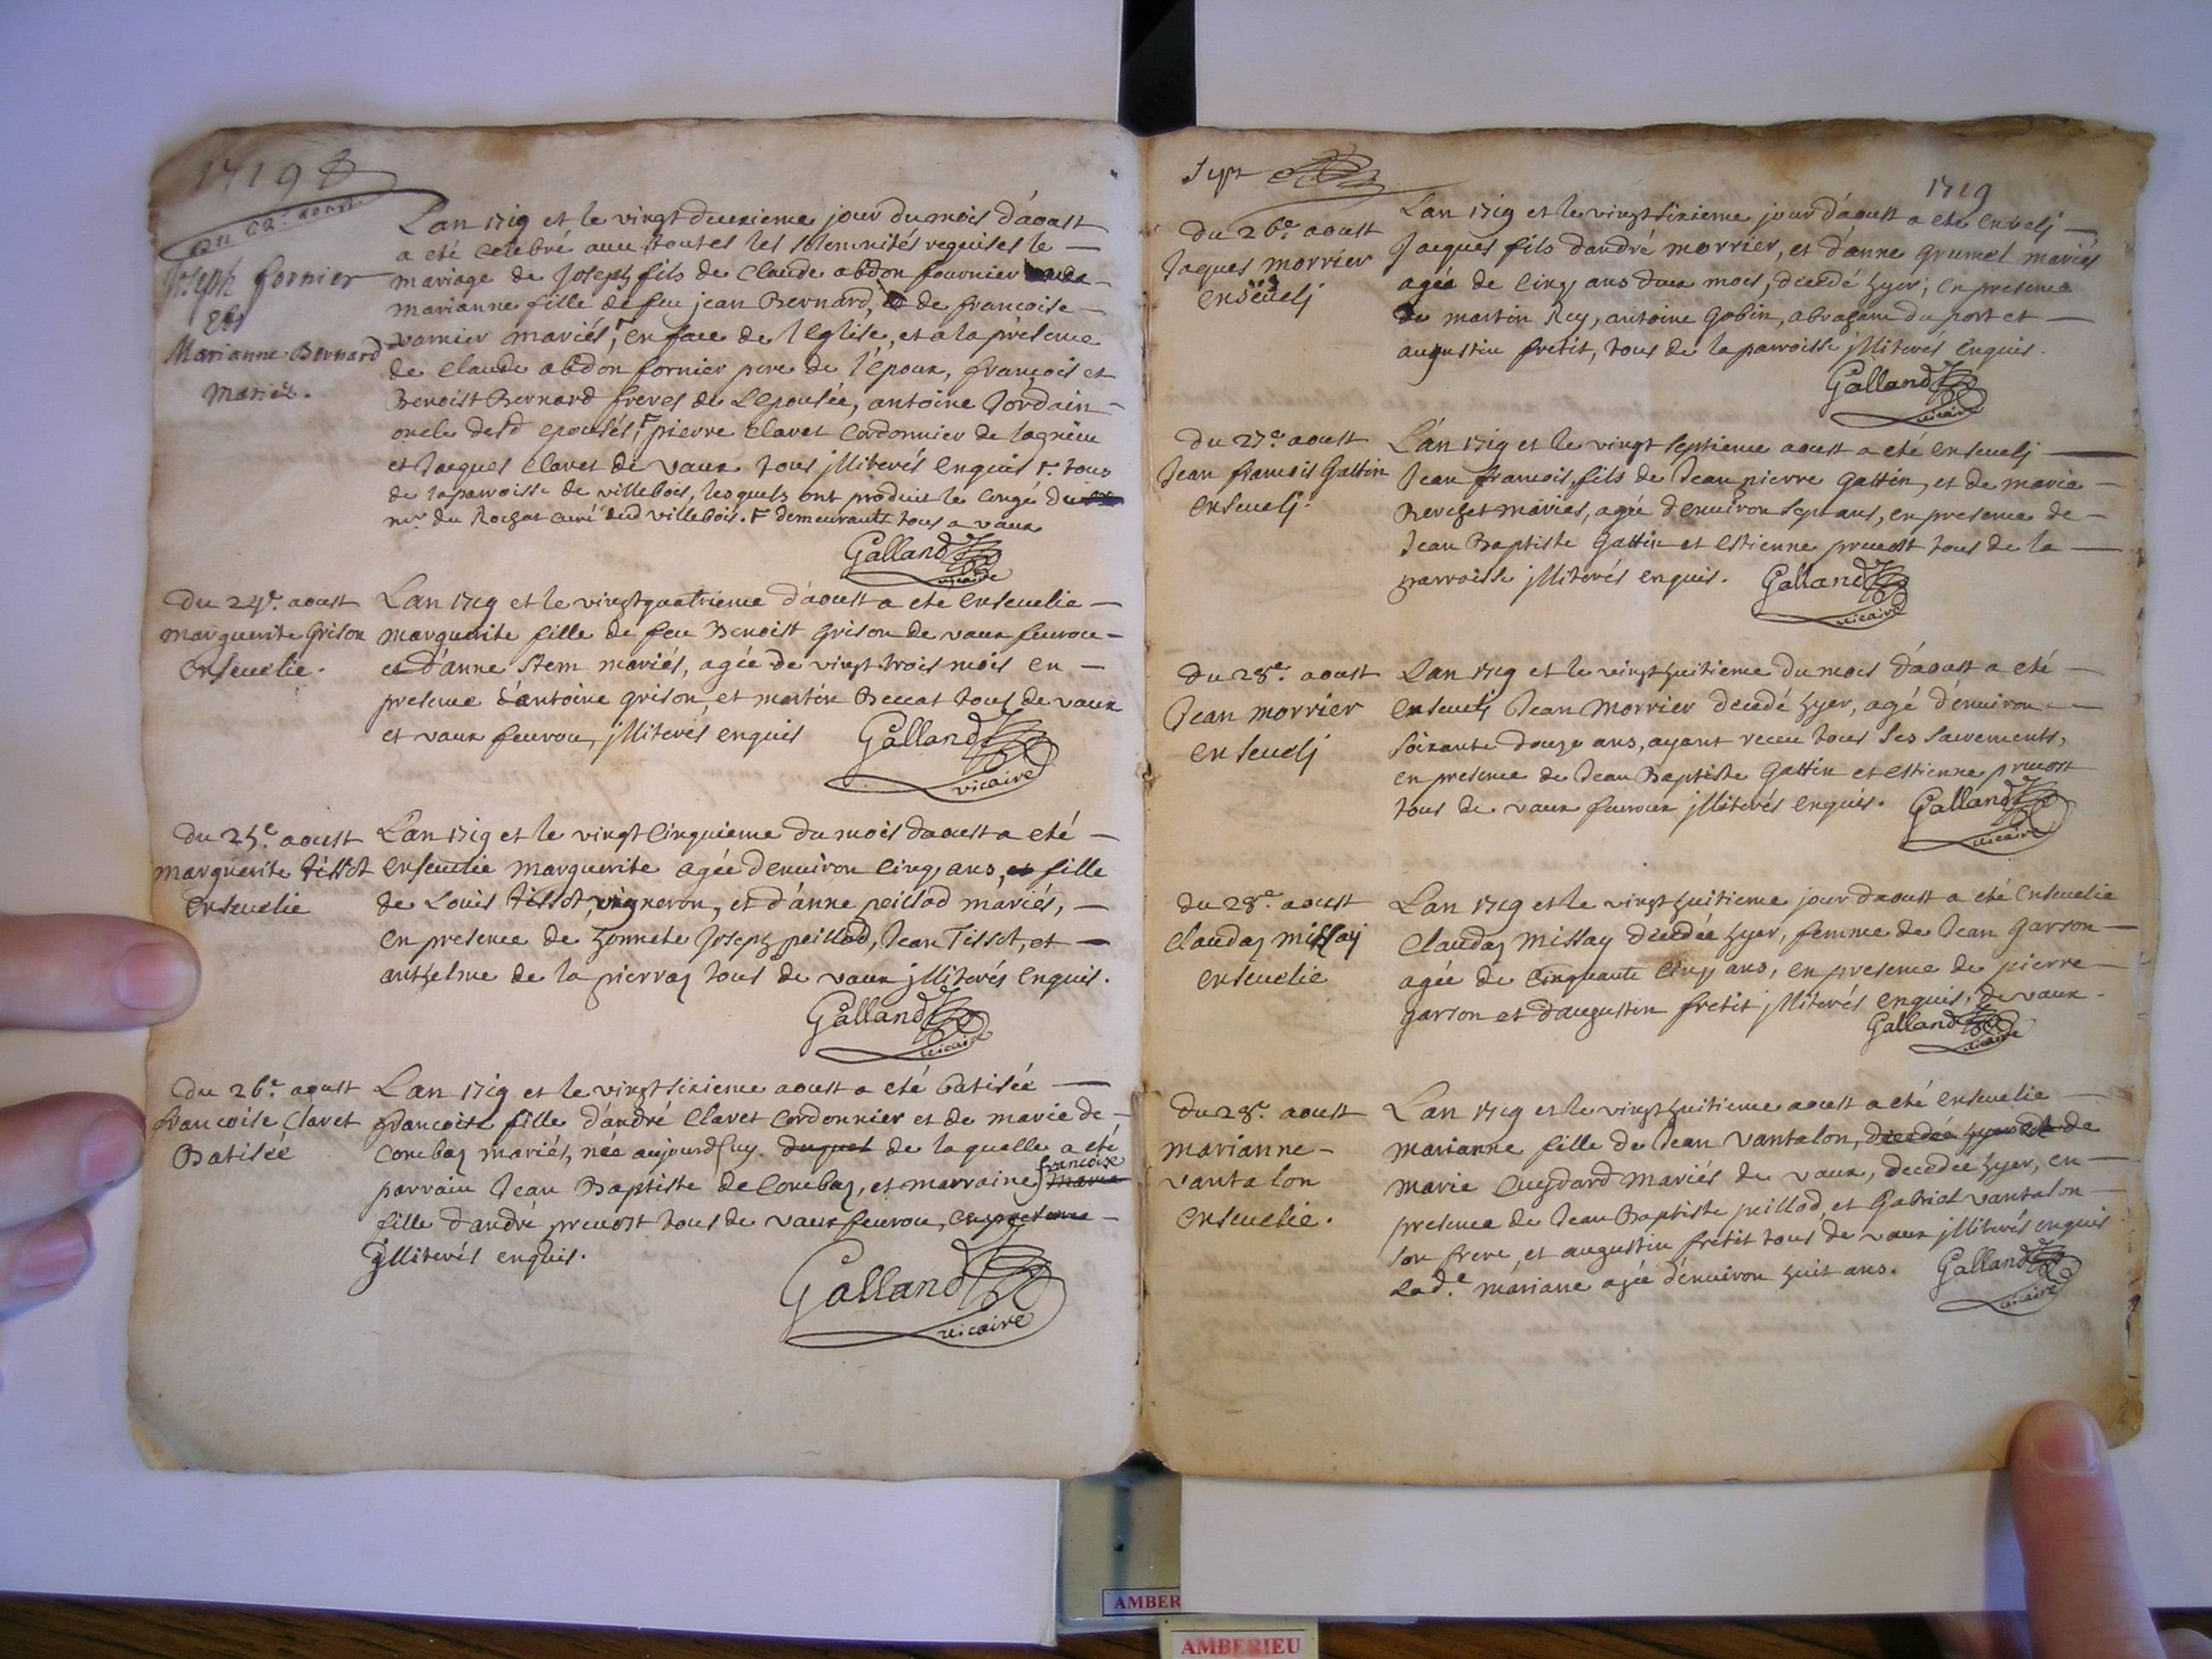 1719
du 22.e aoust
Joseph fornier
Et
Marianne Bernard
mariés.
L'an 1719 et le vingt deuxieme jour du mois d'aoust
a eté celebré avec toutes les solemnités requises le
mariage de Joseph fils de Claude abdon fournier
marianne fille de feu jean Bernard, de francoise
varnier mariés, en face de l'Eglise, et a la présence
de Claude abdon fornier pere de l'epoux, françois et
Benoist Bernard freres de l'epousée, antoine Jordain
oncle desd epousés, pierre Claret Cordonnier de lagnieu
et Jacques Claret de vaux tous jlliterés enquis tous
de la parroisse de villebois, lesquels ont produit le congé du
mr. du Rochat curé dud villebois. demeurants tous a vaux
Galland
vicaire
Du 24.e aoust
marguerite Grison
Ensevelie.
L'an 1719 et le vingt quatrieme d'aoust a eté ensevelie
marguerite fille de feu Benoist Grison de vaux fevrou
et d'anne Stem mariés, agée de vingt trois mois en
presence d'antoine Grison, et martin Beccat tous de vaux
et vaux fevrou, jlliterés enquis
Galland
vicaire
du 25.e aoust
marguerite tissot
ensevelie
L'an 1719 et le vingt cinquieme du mois daoust a eté
ensevelie marguerite agée d'environ cinq ans, et fille
de Louis tissot, vigneron, et d'anne peillod mariés,
en presence de honnete Joseph peillod, Jean Tissot, et
anthelme de la pierraz tous de vaux jlliterés enquis.
Galland
vicaire
du 26.e aoust
francoise Claret
Batisée
L'an 1719 et le vingt sixieme aoust a eté batisée
francoise fille d'andré Claret Cordonnier et de marie de
Combaz mariés, née aujourd'huy. duquel de laquelle a eté
francoise
parrain Jean Baptiste de Combaz, et marraine maria
fille d'andré prevost tous de vaux fevrou, en presence
jlliterés enquis.
Galland
vicaire
Sept
1719
du 26.e aoust
Jaques morrier
enseveli
L'an 1719 et le vingt sixieme jour d'aoust a eté enseli
Jacques fils d'andré morrier, et d'anne grumel mariés
agée de cinq ans deux mois, decedé hyer, en presence
de martin Rey, antoine Gobin, abraham du port et
augustin fretit, tous de la parroisse jlliterés enquis.
Galland
vicaire
du 27.e aoust
Jean francois Gattin
ensevelj.
L'an 1719 et le vingt septieme aoust a eté ensevelj
Jean francois, fils de Jean pierre Gattin, et de marie
Berchet mariés, agée d'environ sept ans, en presence de
Jean Baptiste Gattin et Estienne prevost tous de la
parroisse jlliterés enquis.
Galland
vicaire
du 28.e aoust
Jean morrier
ensevelj
L'an 1719 et le vingt huitieme du mois d'aoust a eté
ensevelj Jean Morrier decedé hyer, agé d'environ
soixante douze ans, ayant receu tous ses sacrements,
en presence de Jean Baptiste Gattin et Estienne prevost
tous de vaux fevroux jlliterés enquis.
Galland
vicaire
du 28.e aoust
Claudaz missay
ensevelie
L'an 1719 et le vingt huitieme jour d'aoust a eté ensevelie
Claudaz Missay decedée hyer, femme de Jean Garson
agée de cinquante cinq ans, en presence de pierre
garson et d'augustin fretit jlliterés enquis, de vaux.
Galland
vicaire
du 28.e aoust
marianne
vantalon
ensevelie.
L'an 1719 et le vingt huitieme aoust a eté ensevelie
marianne fille de Jean Vantalon, decedée hyer et de
marie Cuydard mariés de vaux, decedée hyer, en
presence de Jean Baptiste peillod, et Gabriel vantalon
son frere, et augustin fretit tous de vaux jlliterés enquis
Lad.e mariane agée d'environ huit ans.
Galland
vicaire
AMBER
AMBERIEU